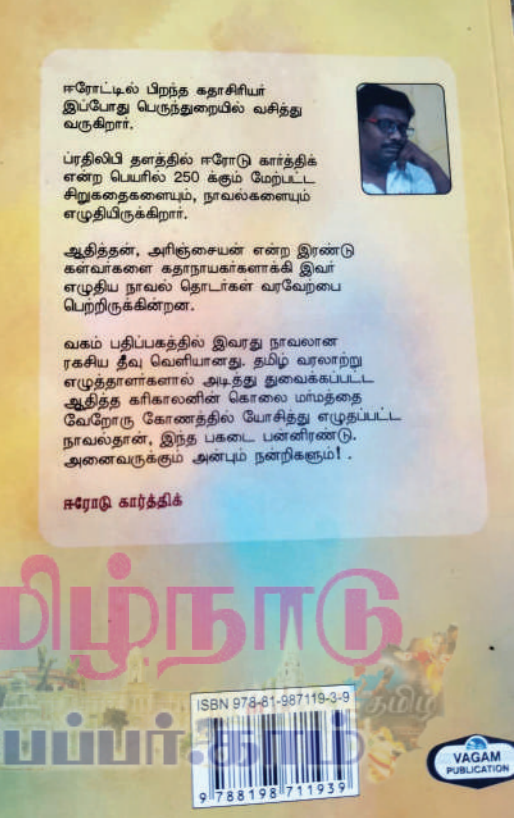 ஈரோட்டில் பிறந்த கதாசிரியர்
இப்போது பெருந்துறையில் வசித்து
வருகிறார்.
ப்ரதிலிபி தளத்தில் ஈரோடு கார்த்திக்
என்ற பெயரில் 250 க்கும் மேற்பட்ட
சிறுகதைகளையும், நாவல்களையும்
எழுதியிருக்கிறார்.
ஆதித்தன், அரிஞ்சையன் என்ற இரண்டு
கள்வர்களை கதாநாயகர்களாக்கி இவர்
எழுதிய நாவல் தொடர்கள் வரவேற்பை
பெற்றிருக்கின்றன.
வகம் பதிப்பகத்தில் இவரது நாவலான
ரகசிய தீவு வெளியானது. தமிழ் வரலாற்று
எழுத்தாளர்களால் அடித்து துவைக்கப்பட்ட
ஆதித்த கரிகாலனின் கொலை மர்மத்தை
வேறோரு கோணத்தில் யோசித்து எழுதப்பட்ட
நாவல்தான், இந்த பகடை பன்னிரண்டு.
அனைவருக்கும் அன்பும் நன்றிகளும்! .
ஈரோடு கார்த்திக்
மிழ்நாடு
தமிழ்
பப்பர்.காம்
ISBN 978-81-987119-3-9
9 788198 711939
VAGAM
PUBLICATION